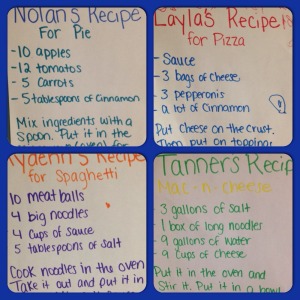 Nolan's Recipe
For Pie
-10 apples
-12 tomatos
- 5 Carrots
- 5 tablespoons of Cinnamon
Mix ingredients with a
Spoon. Put it in the
for
Layla's Recipe
for Pizza
- Sauce
- 3 bags of cheese
- 3 pepperonis
- a lot of Cinnamon
Put Cheese on the Crust.
Then put on topping
Recipe
for Spaghetti
10 meatballs
4 big noodles
4 Cups of Sauce
5 tablespoons of Salt
Cook noodles in the oven
Take it out and put it in
Tanners Recip
Mac-n-cheese
3 gallons of Salt
1 box of long noodles
9 gallons of water
9 cups of cheese
Put it in the oven and
Stir it. Put it in a bowl